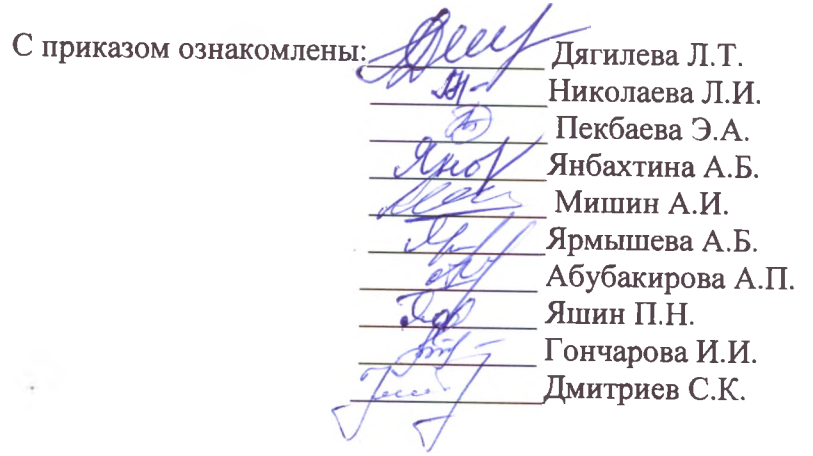 С приказом ознакомлены: Дягилева Л.Т.
Николаева Л.И.
Пекбаева Э.А.
Янбахтина А.Б.
Мишин А.И.
Ярмышева А.Б.
Абубакирова А.П.
Яшин П.Н.
Гончарова И.И.
Дмитриев С.К.